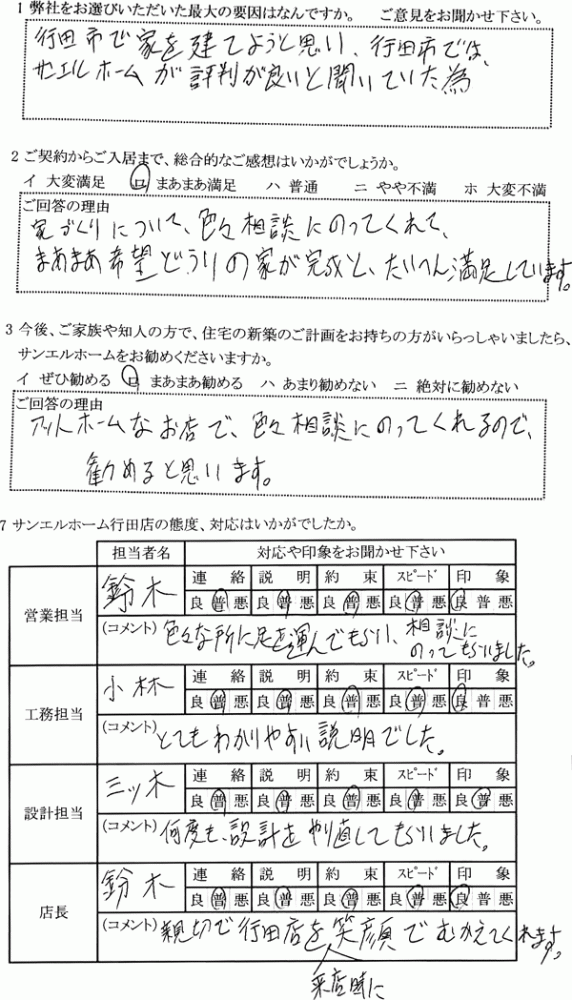 1 弊社をお選びいただいた最大の要因はなんですか。 ご意見をお聞かせ下さい。
行田市で家を建てようと思い、行田市では、
サンエルホームが評判が良いと聞いていた為
2 ご契約からご入居まで、総合的なご感想はいかがでしょうか。
イ 大変満足 ロ まあまあ満足 ハ 普通 ニ やや不満 ホ 大変不満
ご回答の理由
家づくりについて、色々相談にのってくれて、
まあまあ希望どうりの家が完成と、たいへん満足しています。
3 今後、ご家族や知人の方で、住宅の新築のご計画をお持ちの方がいらっしゃいましたら、
サンエルホームをお勧めくださいますか。
イ ぜひ勧める ロ まあまあ勧める ハ あまり勧めない ニ 絶対に勧めない
ご回答の理由
アットホームなお店で、色々相談にのってくれるので、
勧めると思います。
7 サンエルホーム行田店の態度、対応はいかがでしたか。
担当者名 対応や印象をお聞かせ下さい
営業担当 鈴木 連絡 説明 約束 スピード 印象
良 普 悪 良 普 悪 良 普 悪 良 普 悪 良 普 悪
(コメント) 色々な所に足を運んでもらい、相談に
のってもらいました。
工務担当 小林 連絡 説明 約束 スピード 印象
良 普 悪 良 普 悪 良 普 悪 良 普 悪 良 普 悪
(コメント) とてもわかりやすい説明でした。
設計担当 三ッ木 連絡 説明 約束 スピード 印象
良 普 悪 良 普 悪 良 普 悪 良 普 悪 良 普 悪
(コメント) 何度も、設計をやり直してもらいました。
店長 鈴木 連絡 説明 約束 スピード 印象
良 普 悪 良 普 悪 良 普 悪 良 普 悪 良 普 悪
(コメント) 親切で行田店を笑顔でむかえてくれます。
来店時に